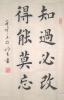 知過必改
得能莫忘